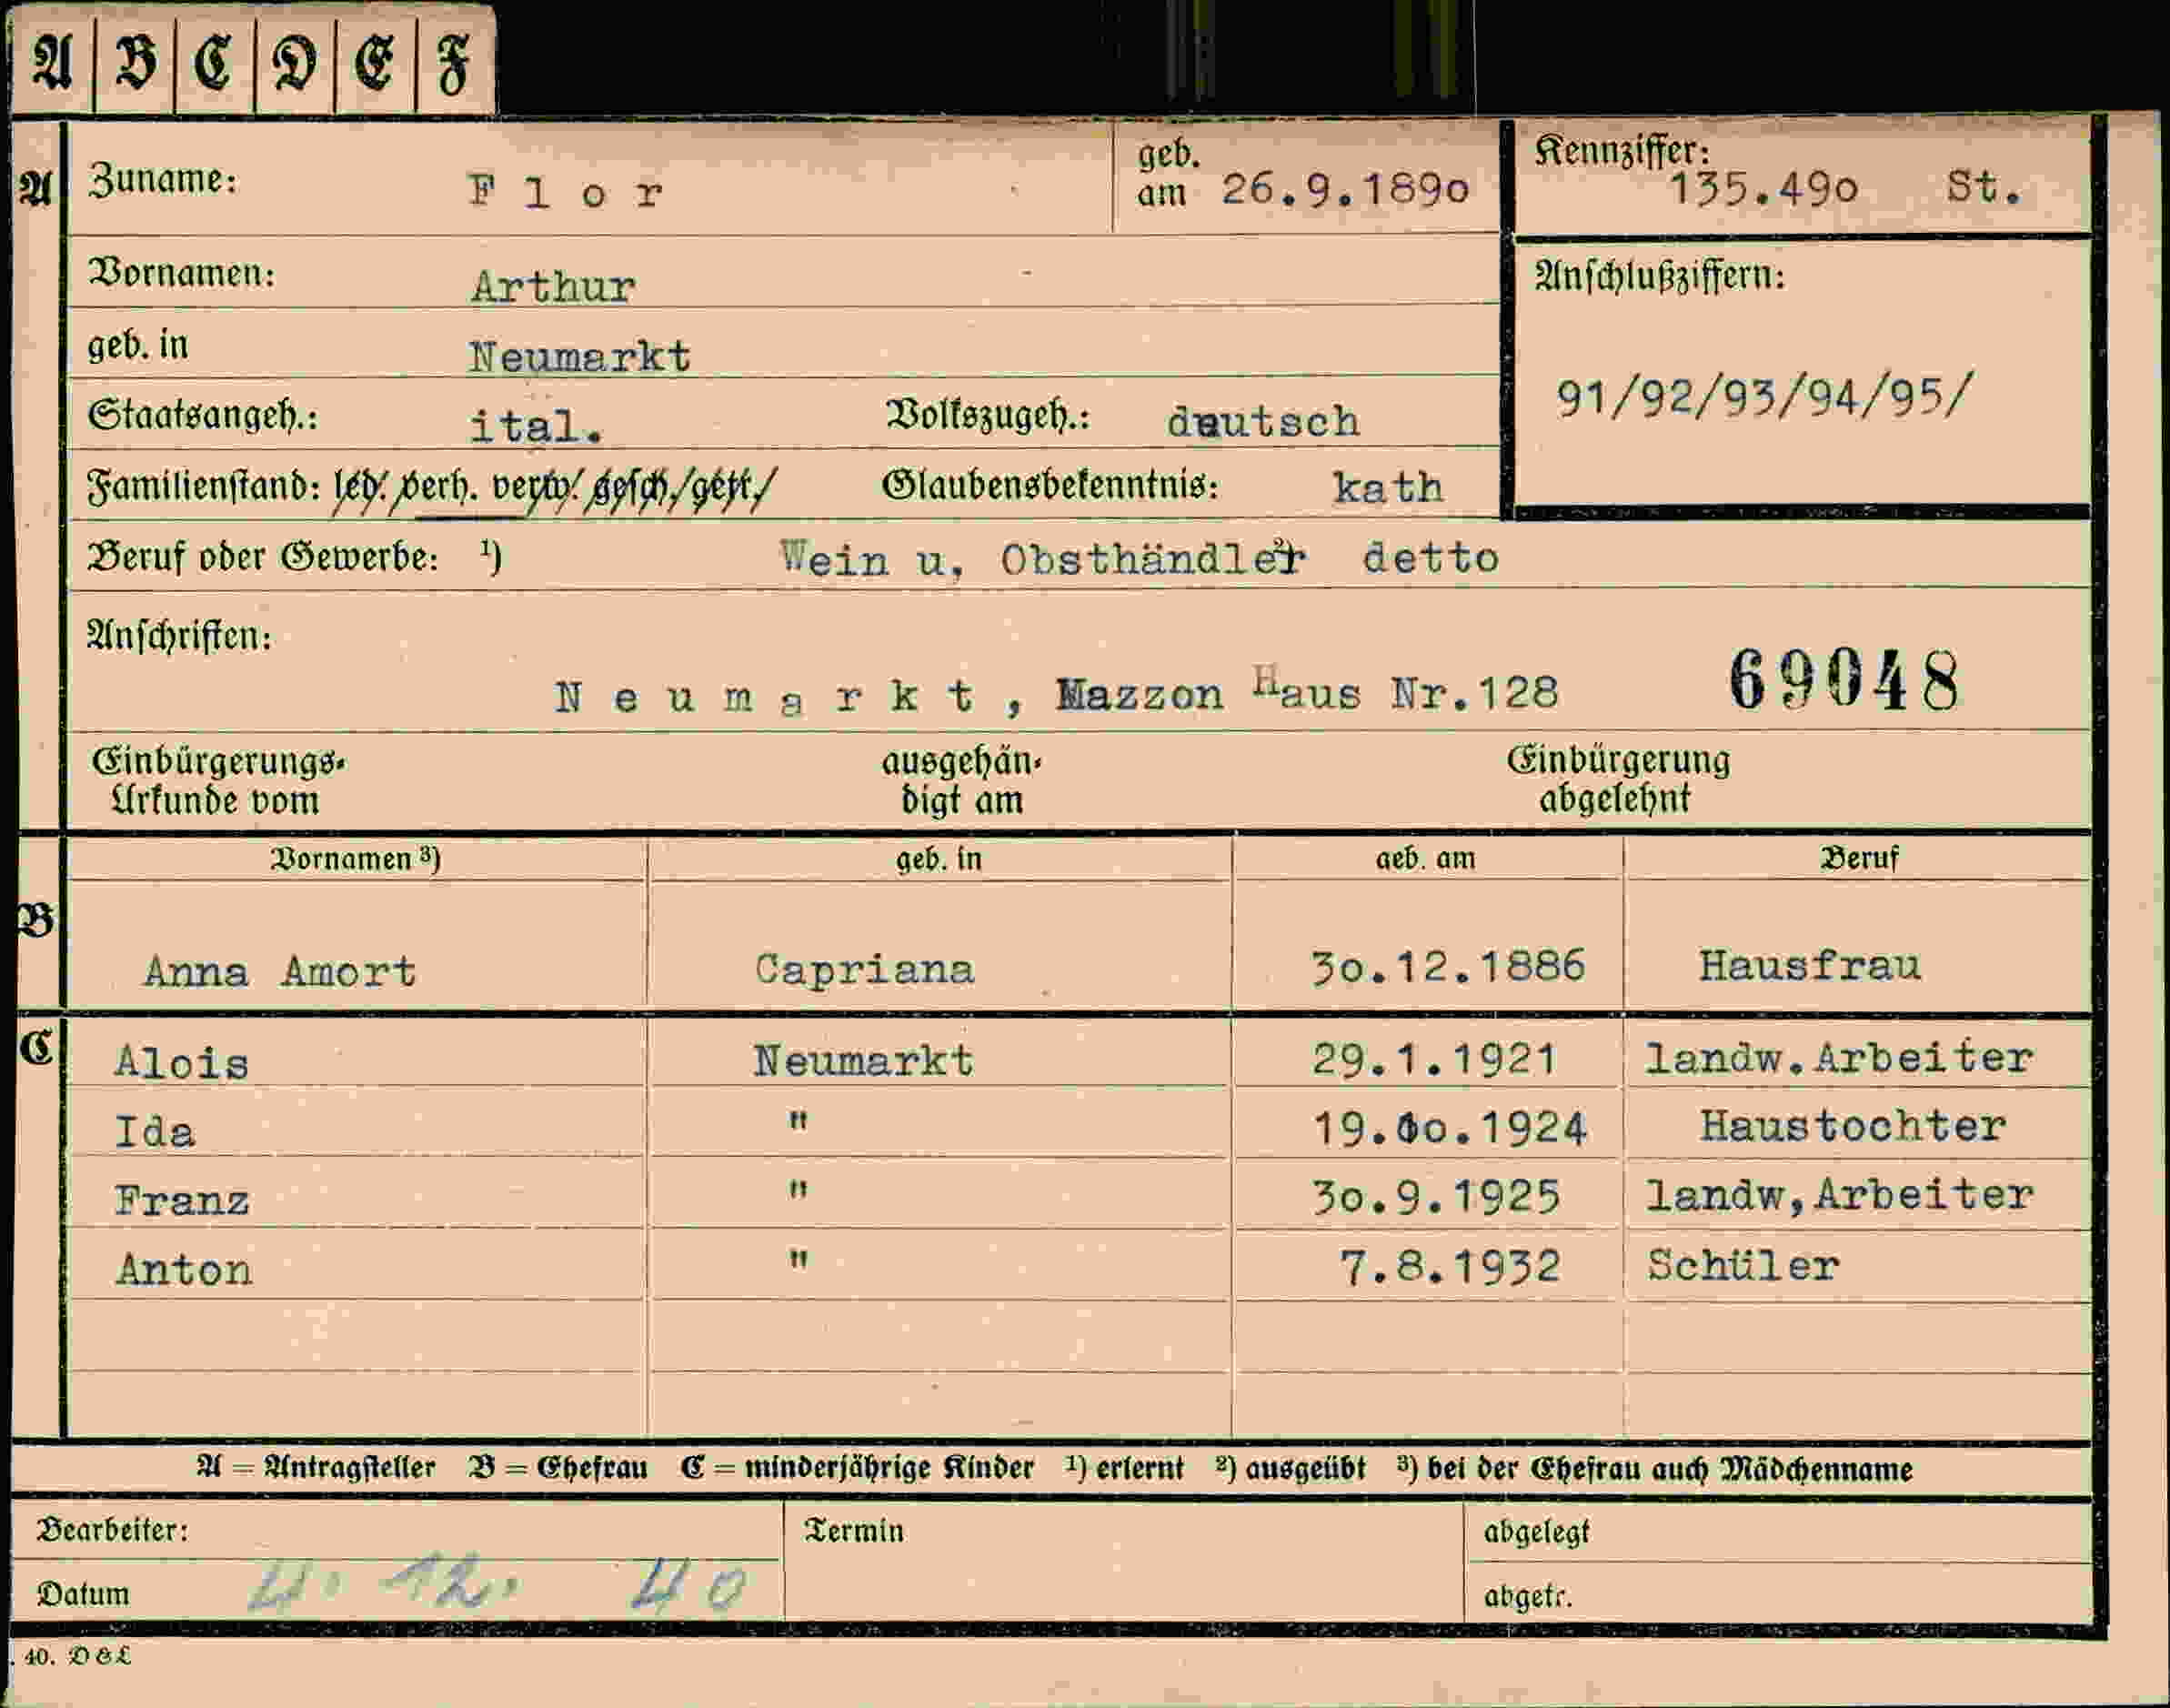 A B C D E F
A Zuname: Flor geb. am 26.9.1890 Kennziffer: 135.490 St.
Vornamen: Arthur Anschlußziffern:
geb. in Neumarkt 91/92/93/94/95/
Staatsangeh.: ital. Volkszugeh.: deutsch
Familienstand: led. verh. verw. gesch./getr./ Glaubensbekenntnis: kath
Beruf oder Gewerbe: ¹) Wein u, Obsthändler ²) detto
Anschriften:
Neumarkt, Mazzon Haus Nr.128 69048
Einbürgerungs- ausgehän- Einbürgerung
Urkunde vom digt am abgelehnt
Vornamen ³) geb. in geb. am Beruf
B Anna Amort Capriana 30.12.1886 Hausfrau
C Alois Neumarkt 29.1.1921 landw.Arbeiter
Ida " 19.10.1924 Haustochter
Franz " 30.9.1925 landw,Arbeiter
Anton " 7.8.1932 Schüler
A = Antragsteller B = Ehefrau C = minderjährige Kinder ¹) erlernt ²) ausgeübt ³) bei der Ehefrau auch Mädchenname
Bearbeiter: Termin abgelegt
Datum 4. 12. 40 abgetr.
40. D & L